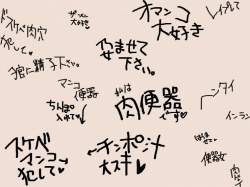 ドスケベ肉穴
犯して♥
ザーメン
大好き
オマンコ
大好き
レイプして
孕ませて
下さい。
子宮に精子下さい。
マンコ
便器
ちんぽ
入れて♥
私は
肉便器
です♥
インラン
スケベ
マンコ
犯して♥
チンポ汁
大スキ♥
便器女